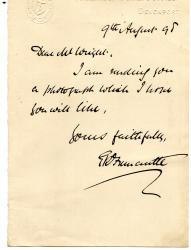 DEVONPORT
9th August 98
Dear Mr Wright,
I am sending you
a photograph which I hope
you will like,
Yours faithfully,
E R Fremantle